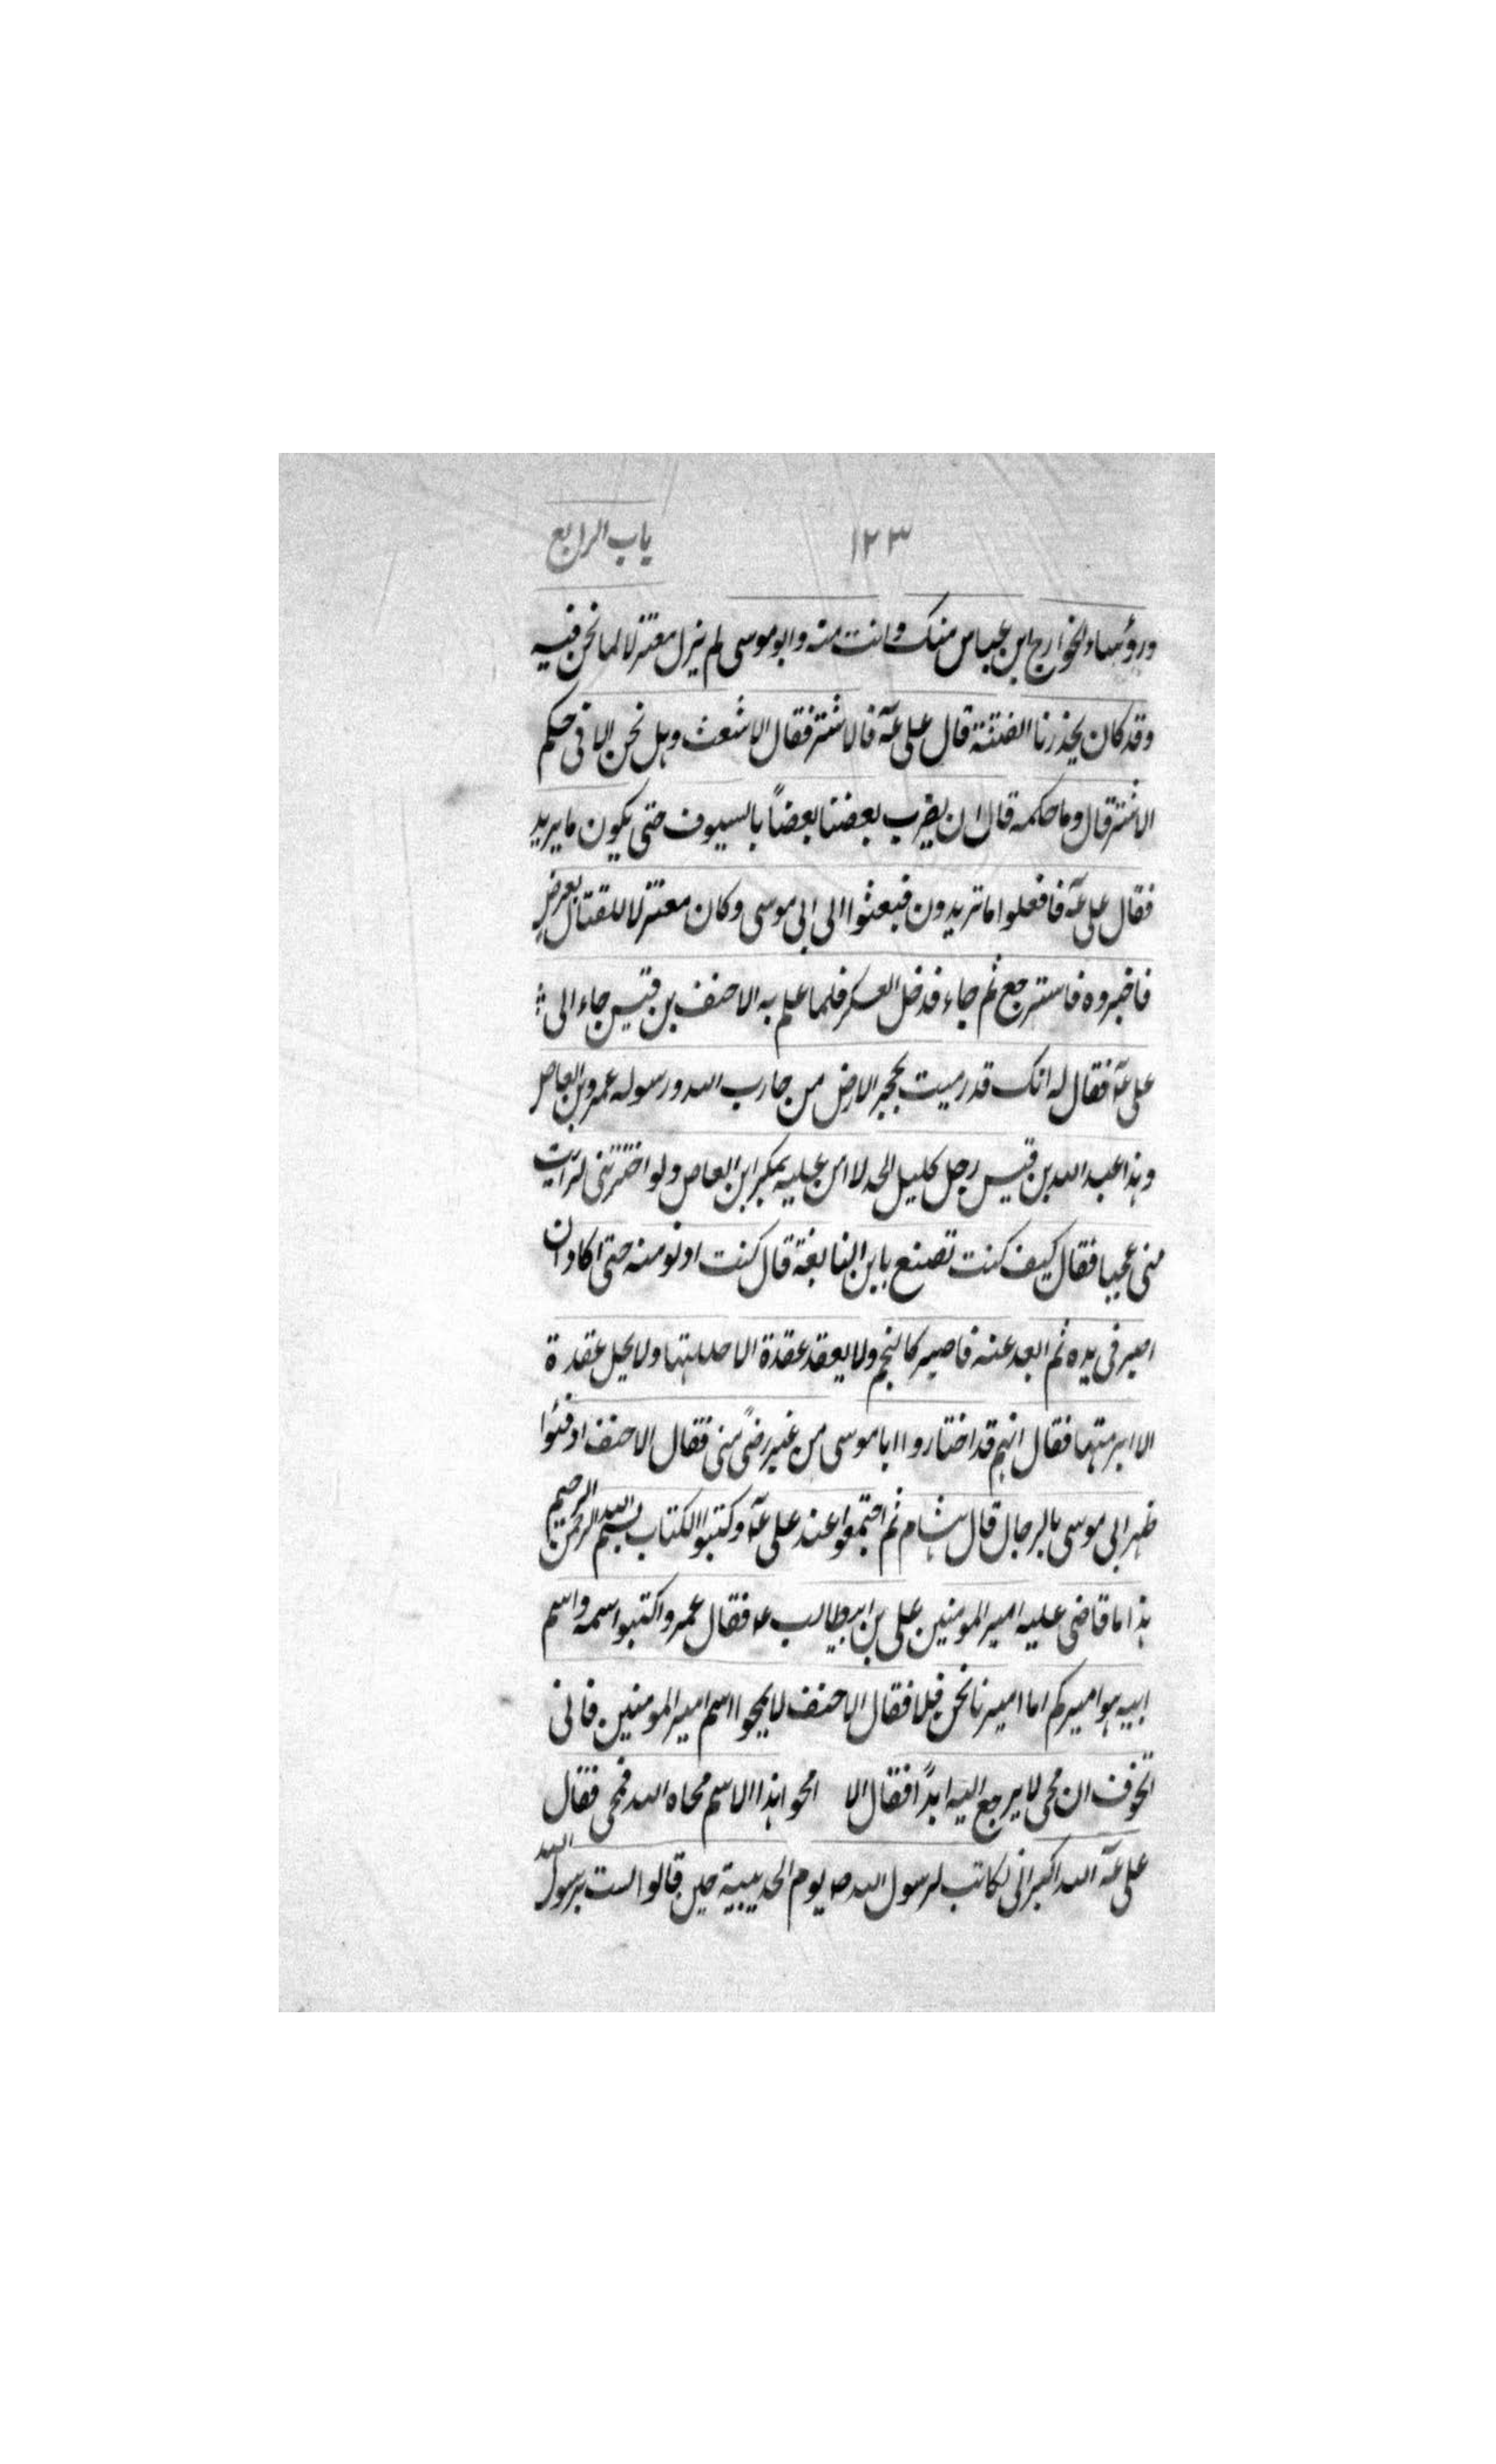 ١٢٣ باب الرابع
ورؤساء الخوارج ابن عباس منك وانت منه وابو موسى لم يزل معتزلا لما نحن فيه
وقد كان يحذرنا الفتنة قال على عه فالاشتر فقال الاشعث وهل نحن الا فى حكم
الاشتر قال وما حكمه قال ان يضرب بعضنا بعضاً بالسيوف حتى يكون ما يريد
فقال على عه فافعلوا ما تريدون فبعثوا الى ابى موسى وكان معتزلا للقتال بعرض
فاخبروه فاسترجع ثم جاء فدخل العسكر فلما علم به الاحنف بن قيس جاء الى
على عه فقال له انك قد رميت بحجر الارض من حارب الله ورسوله عمرو بن العاص
وهذا عبد الله بن قيس رجل كليل الحد لا امن عليه بمكر ابن العاص ولو اخترتنى لرايت
منى عجبا فقال كيف كنت تصنع بابن النابغة قال كنت ادنو منه حتى اكاد ان
اصير فى يده ثم ابعد عنه فاصير كالنجم ولا يعقد عقدة الا حللتها ولا يحل عقدة
الا ابرمتها فقال انهم قد اختاروا ابا موسى من غير رضىً منى فقال الاحنف ادفئوا
ظهر ابى موسى بالرجال قال هشام ثم اجتمعوا عند على عه وكتبوا الكتاب بسم الله الرحمن الرحيم
هذا ما قاضى عليه امير المومنين على بن ابيطالب ع فقال عمرو اكتبوا اسمه واسم
ابيه هو اميركم اما اميرنا نحن فلا فقال الاحنف لا يمحوا اسم امير المومنين فانى
اتخوف ان محى لا يرجع اليه ابداً فقال الا امحوا هذا الاسم محاه الله فمحى فقال
على عه الله اكبر انى لكاتب لرسول الله ص يوم الحديبية حين قالوا لست برسول الله